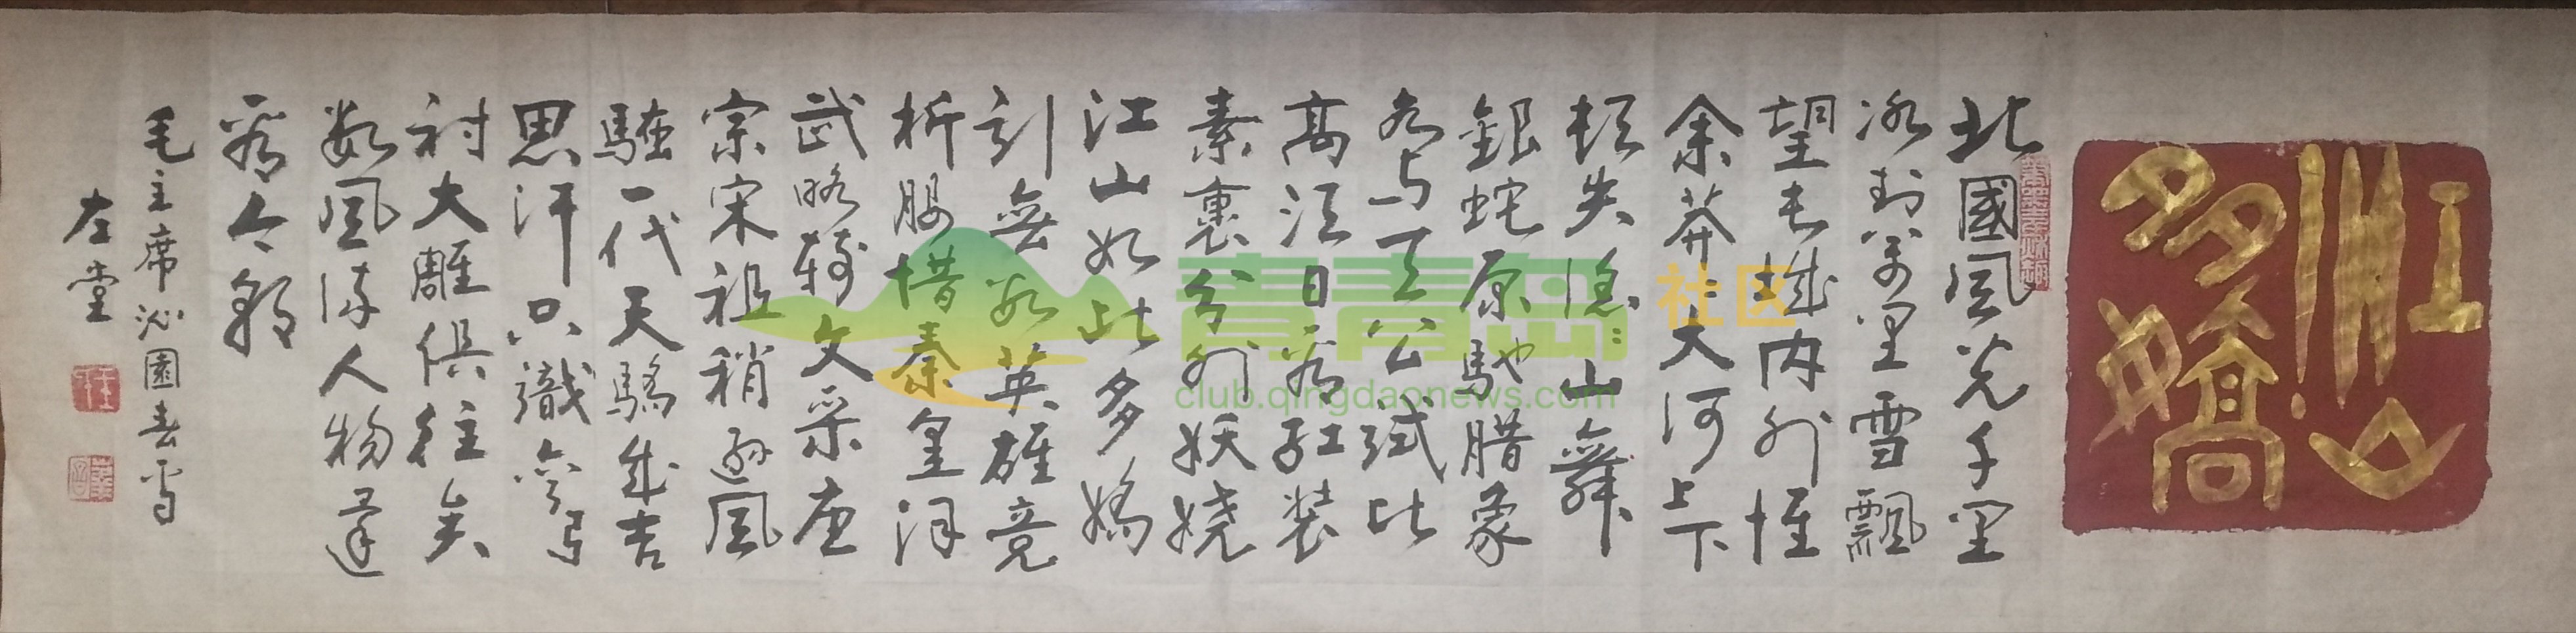 江山
多嬌
北國風光千里
冰封萬里雪飄
望长城内外惟
余莽々大河上下
頓失滔々山舞
銀蛇原馳腊象
欲与天公試比
高須日看红装
素裹分外妖娆
江山如此多嬌
引無数英雄竞
折腰惜秦皇漢
武略輸文采唐
宗宋祖稍遜風
騷一代天驕成吉
思汗只識彎弓
射大雕俱往矣
数風流人物還
看今朝
毛主席沁園春雪
左堂
青青岛社区
club.qingdaonews.com